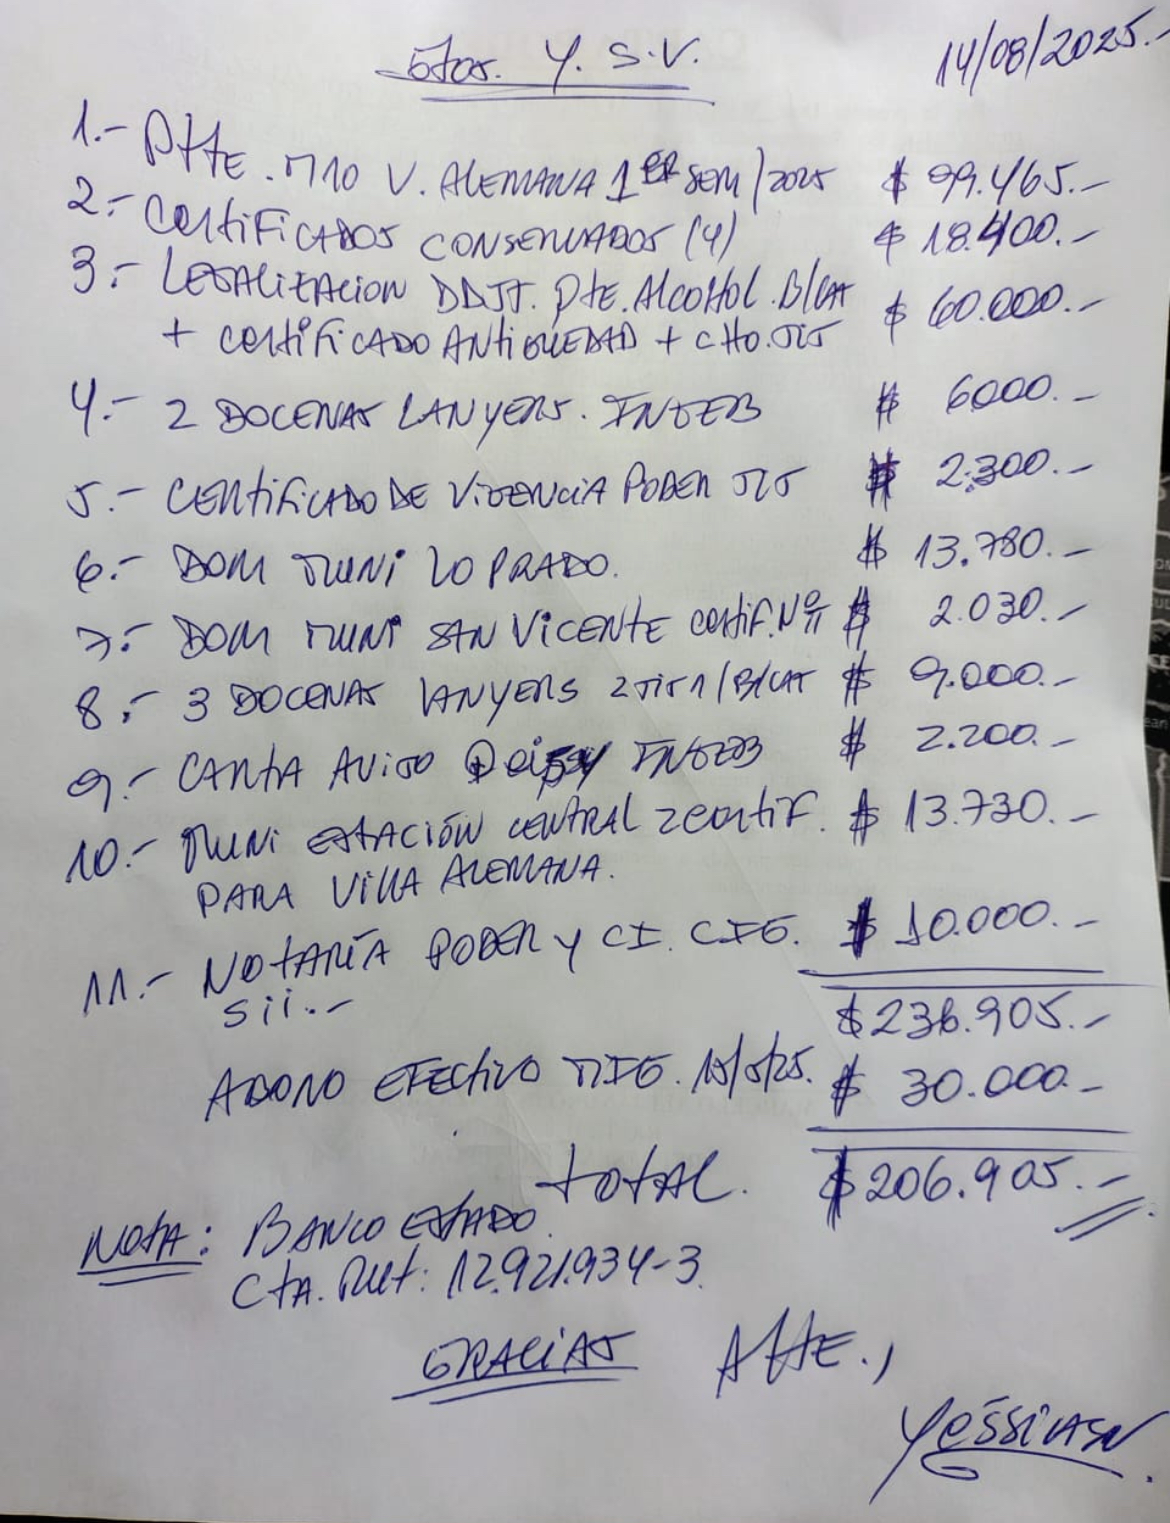 Gtos. Y. S.V.
14/08/2025.-
1.- PttE. M10 V. ALEMANA 1ER SEM/2025 $ 99.465.-
2.- CERTIFICADOS CONSERVADOR (4) $ 18.400.-
3.- LEGALIZACION DDJJ. Pte. Alcohol. B/CAT $ 60.000.-
+ CERTIFICADO ANTIGUEDAD + CHO.
4.- 2 DOCENAS LANYERS. $ 6000.-
5.- CERTIFICADO DE VIGENCIA PODER $ 2.300.-
6.- DOM MUNI LO PRADO. $ 13.780.-
7.- DOM MUNI SAN VICENTE certif. Nº $ 2.030.-
8.- 3 DOCENAS LANYERS $ 9.000.-
9.- CARTA AVISO $ 2.200.-
10.- MUNI ESTACIÓN CENTRAL 2 certif. $ 13.730.-
PARA VILLA ALEMANA.
11.- NOTARÍA PODER Y CI. $ 10.000.-
SII.-
$ 236.905.-
ABONO EFECTIVO $ 30.000.-
TOTAL. $ 206.905.-
NOTA: BANCO ESTADO
CTA. RUT: 12.921.934-3
GRACIAS Atte.,